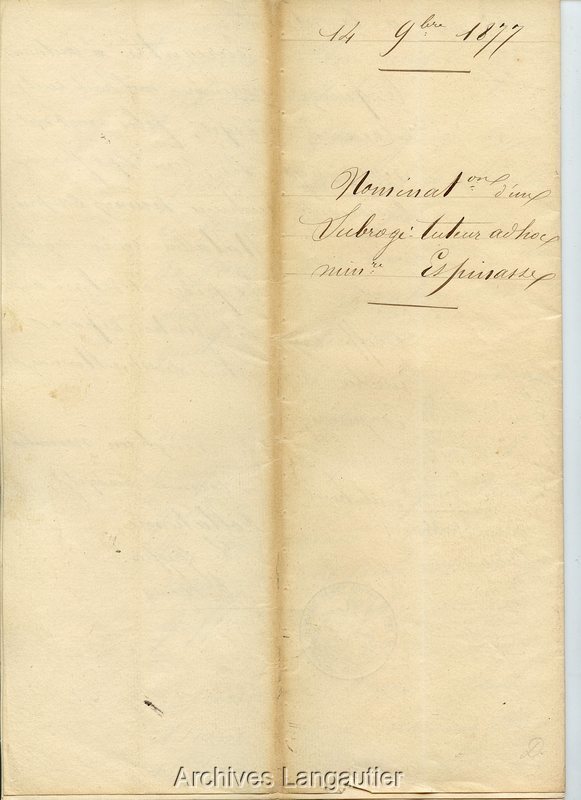 14 9bre 1877
Nominaton d'un
Subrogé tuteur ad hoc
minre Espinasse
Archives Langautier